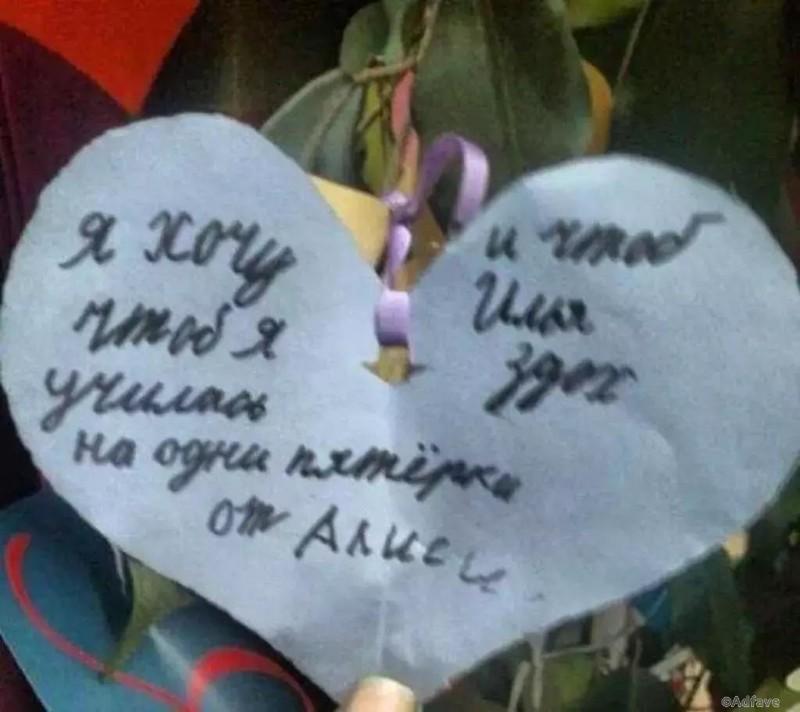 я хочу
чтоб я
училась
на одни пятёрки
от Алисы
и чтоб
Илья
здох
©Adfave